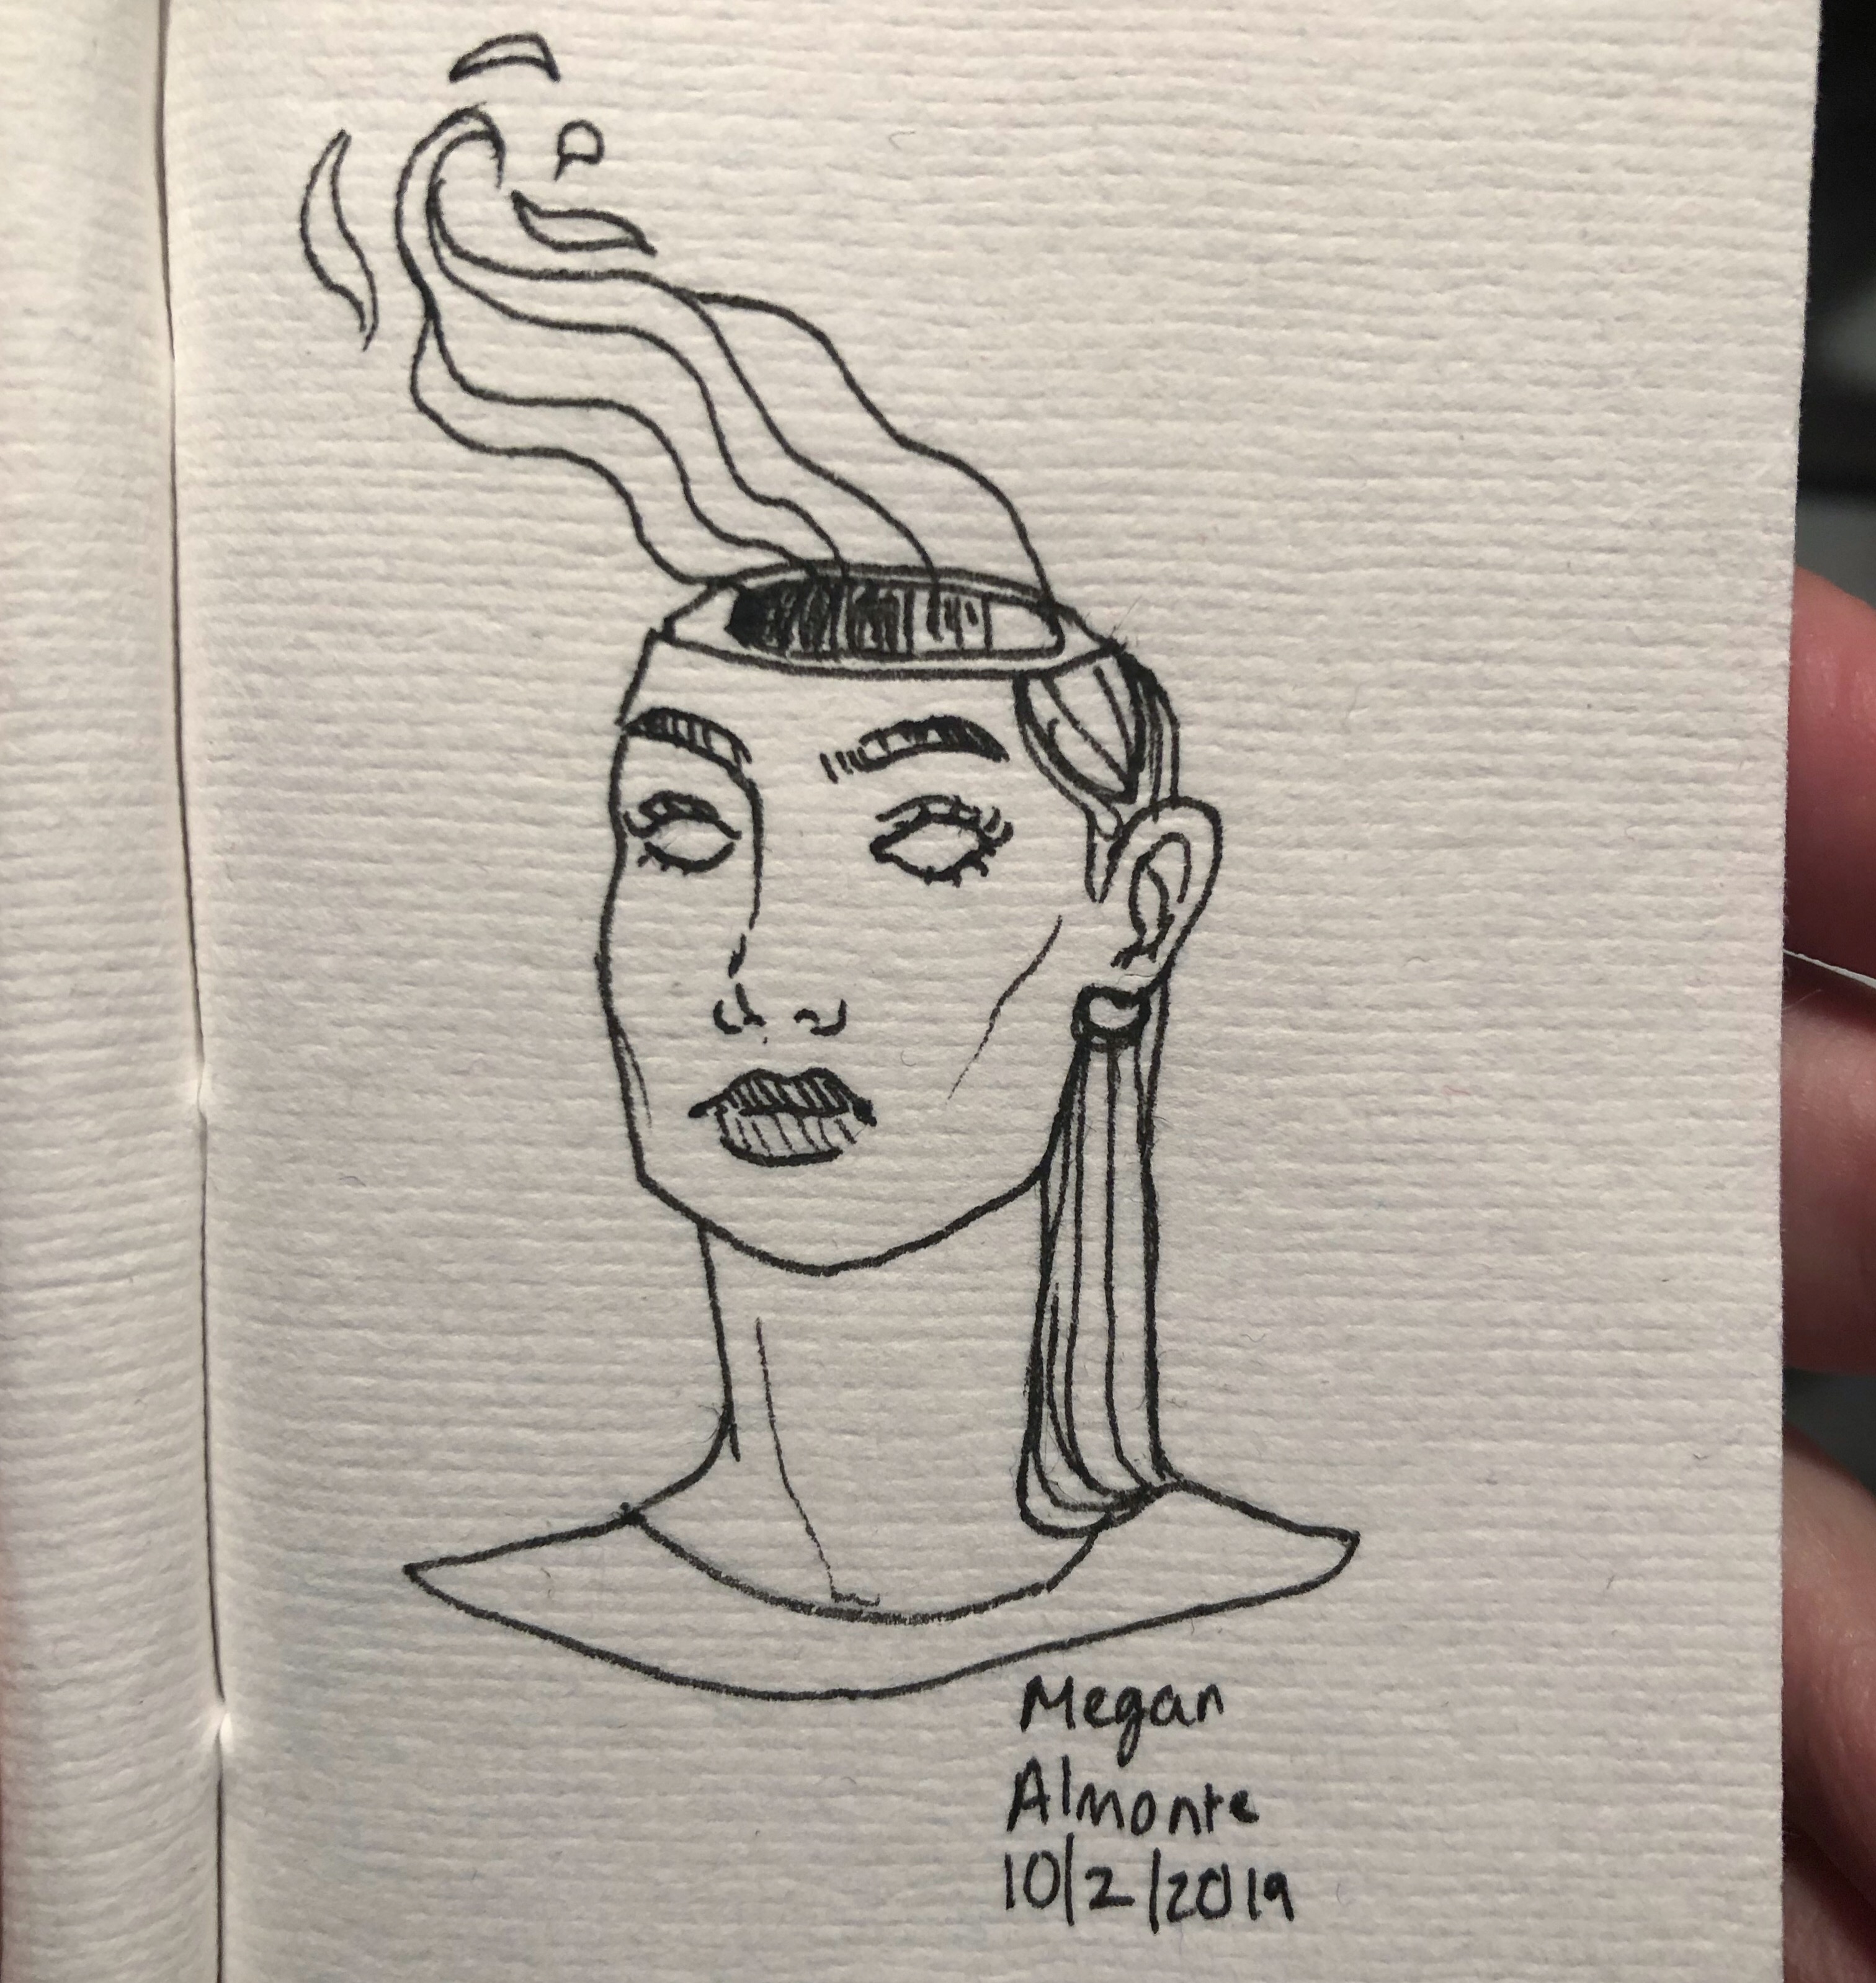 Megan
Almonte
10/2/2019